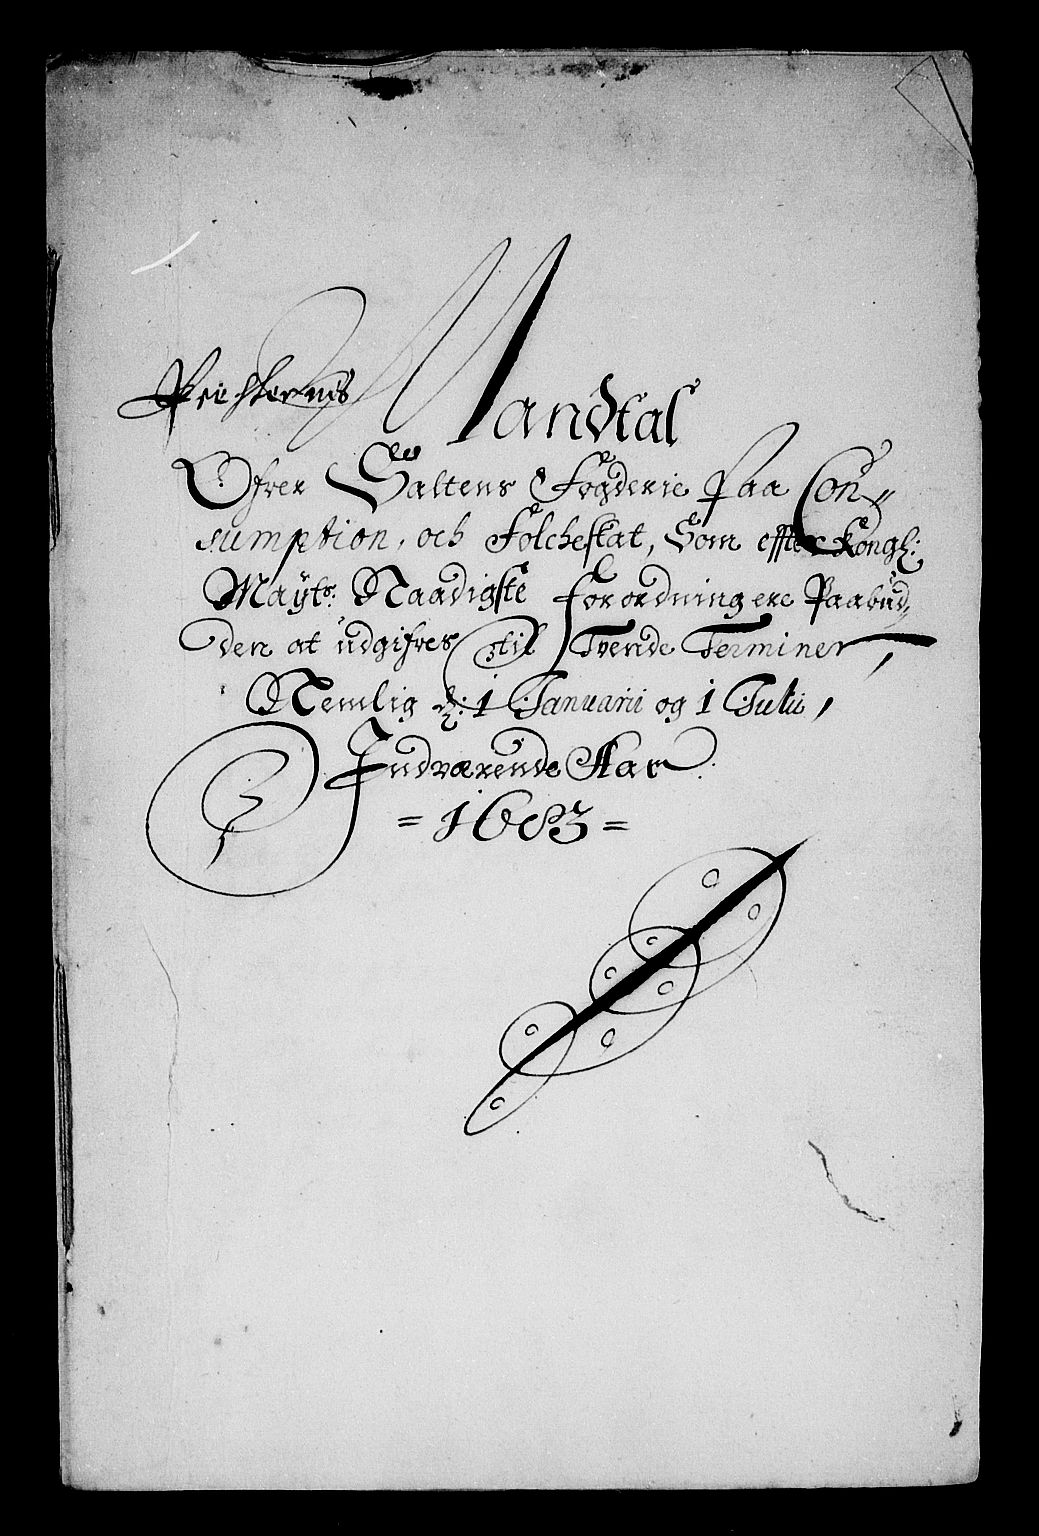 Presternis
Mandtal
Ofver Saltens Fogderie Paa Con=
sumption, och Folcheskat, Som effter Kongl:
Mayts: Naadigste Forordningere Paabud,
den at udgifves til Tvende Terminer,
Nemlig d: 1 Januarii og 1 Julii,
Indværende Aar
= 1683 =